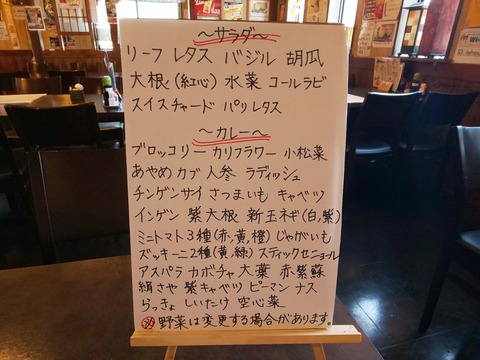 ～サラダ～
リーフ レタス バジル 胡瓜
大根(紅心) 水菜 コールラビ
スイスチャード パリレタス
～カレー～
ブロッコリー カリフラワー 小松菜
あやめカブ 人参 ラディッシュ
チンゲンサイ さつまいも キャベツ
インゲン 紫大根 新玉ネギ(白,紫)
ミニトマト3種(赤,黄,橙) じゃがいも
ズッキーニ2種(黄,緑) スティックセニョール
アスパラ カボチャ 大葉 赤紫蘇
絹さや 紫キャベツ ピーマン ナス
らっきょ しいたけ 空心菜
※野菜は変更する場合があります。